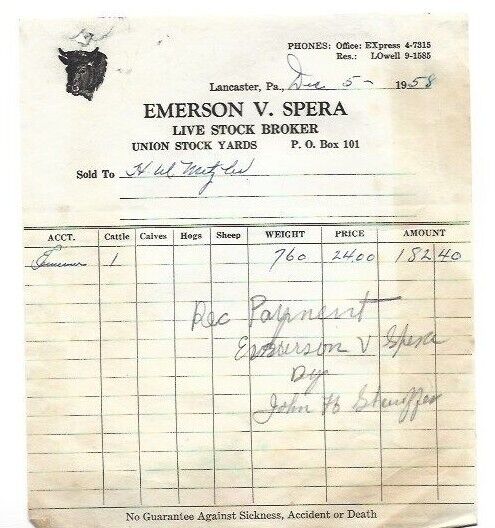 PHONES: Office: EXpress 4-7315
Res.: LOwell 9-1585
Lancaster, Pa., Dec 5 - 1958
EMERSON V. SPERA
LIVE STOCK BROKER
UNION STOCK YARDS P. O. Box 101
Sold To H W Metzler
ACCT. Cattle Calves Hogs Sheep WEIGHT PRICE AMOUNT
1 760 2400 182 40
Rec Payment
Emerson V Spera
By
John H Stauffer
No Guarantee Against Sickness, Accident or Death